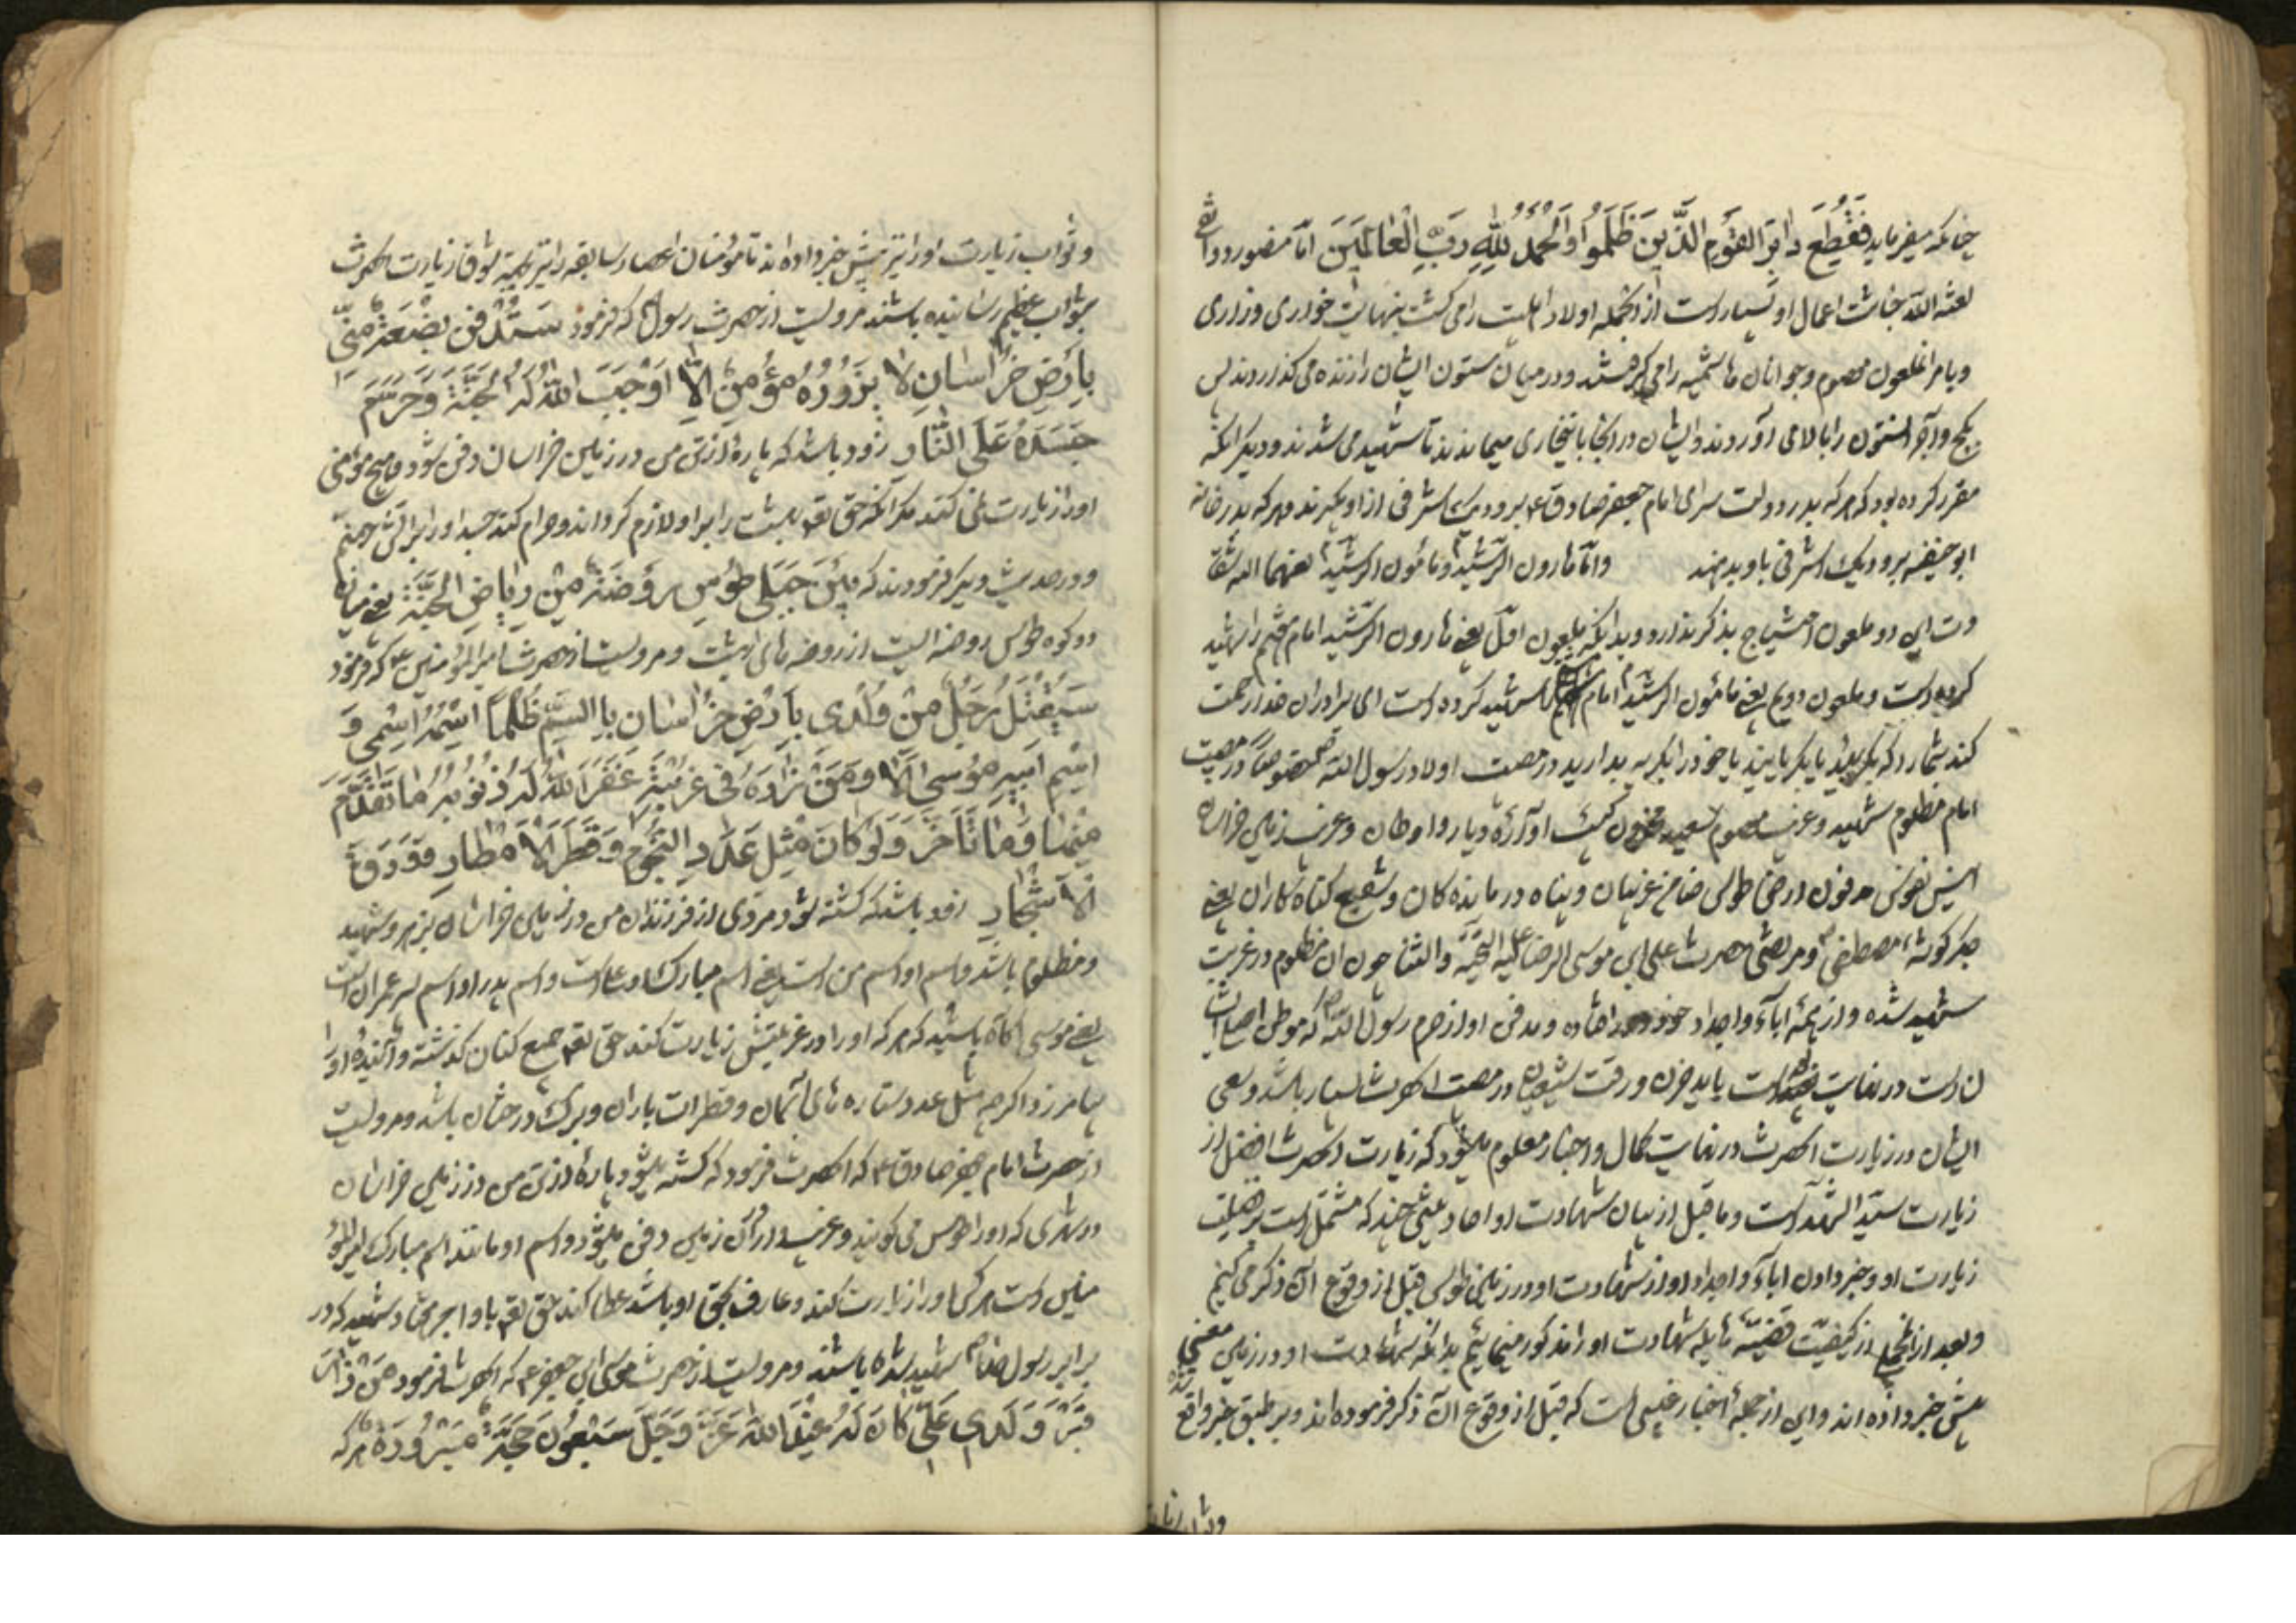 چنانکه میفرماید فَقُطِعَ دابِرُ القَوْمِ الَّذینَ ظَلَمُوا وَالْحَمْدُ لِلّهِ رَبِّ الْعالَمینَ امّا منصور
لعنه الله اعمال او بسیار است از انجمله اولاد را می کشت بنهایت خواری و زاری
و جوانان هاشمیه را می و در میان ستون ایشان را زنده می گذاردند پس
گچ و آجر ستون را بالا می آوردند و ایشان در انجا میماندند تا شهید می شدند و دیگر انکه
مقرر کرده بود که هر که بدر دولت سرای امام جعفر صادق ع برود یک اشرفی از او بگیرند و هر که بدر خانه
ابو حنیفه برود یک اشرفی باو بدهند وامّا هارون الرّشید و مامون الرشید لعنهما الله
این دو ملعون احتیاج بذکر ندارد و بدانکه ملعون اوّل یعنی هارون الرّشید امام هفتم را شهید
کرده است و ملعون دویم یعنی مامون الرشید امام را شهید کرده است ای برادران خدا رحمت
کند شما را که یا خود را بگریه بدارید در مصیبت اولاد رسول الله خصوصاً در مصیبت
امام مظلوم شهید و غریب معصوم سعید آوارۀ دیار و اوطان و غریب زمین خراسان
انیس نفوس مدفون ارض طوس ضامن غریبان و پناه درمانده کان و شفیع گناه کاران یعنی
جگر گوشۀ مصطفی و مرتضی حضرت علی ابن موسی الرضا علیه التحیّه والثنا چون ان مظلوم در غربت
شهید شده و از همۀ آباء و اجداد خود دور افتاده و مدفن او از حرم رسول الله که موطن اصلی ایشان
است در نهایت است باید حزن و رقت شیعیان در مصیبت انحضرت بسیار باشد و سعی
ایشان در زیارت انحضرت در نهایت کمال و اخبار معلوم میشود که زیارت انحضرت افضل از
زیارت سیّد الشهدا است و ما قبل از بیان شهادت او احادیثی چند که مشتمل است بر فضیلت
زیارت او و خبر دادن اباء و اجداد او از شهادت او در زمین طوس قبل از وقوع ان ذکر می کنیم
و بعد از کیفیّت قضیّه هایله شهادت او را مذکور مینمائیم بدانکه شهادت او در زمین
پیش خبر داده اند و این از جملۀ اخبار غیبی است که قبل از وقوع ان ذکر فرموده اند و بر طبق خبر واقع
و ثواب زیارت
و ثواب زیارت او را نیز پیش خبر داده اند تا مؤمنان اعصار سابقه را نیز شوق زیارت انحضرت
بثواب عظیم رسانیده باشند مرویست از حضرت رسول که فرمود سَتُدْفَنُ بَضْعَةٌ مِنّی
بِاَرْضِ خُراسانِ لا یَزُورُهُ مُؤمِنٌ اِلّا اَوْجَبَ اللهُ لَهُ الْجَنَّةَ وَحَرَّمَ
جَسَدَهُ عَلَی النّارِ زود باشد که پارۀ از تن من در زمین خراسان دفن شود و هیچ مؤمنی
او را زیارت نمی کند مگر انکه حق تعالی بهشت را بر او لازم گرداند و حرام کند جسد او را بر آتش جهنم
و در حدیث دیگر فرمودند که بَیْنَ جَبَلَی طُوسٍ رَوْضَةٌ مِنْ رِیاضِ الْجَنَّةِ یعنی میانه
دو کوه طوس روضه ایست از روضه های بهشت و مرویست از حضرت امیر المؤمنین ع که فرمود
سَیُقْتَلُ رَجُلٌ مِنْ وُلْدی بِاَرْضِ خُراسان بِالسَّمِّ ظُلْماً اسْمُهُ اسْمی وَ
اسْمُ اَبیهِ مُوسی اَلا وَمَنْ زارَهُ فی غُرْبَتِهِ غَفَرَ اللهُ لَهُ ذُنُوبَهُ ما تَقَدَّمَ
مِنْها وَما تَأَخَّرَ وَلَوْ کانَ مِثْلَ عَدَدِ النُّجُومِ وَقَطْرِ الْاَمْطارِ وَوَرَقِ
الْاَشْجارِ زود باشد که کشته شود مردی از فرزندان من در زمین خراسان بزهر و شهید
و مظلوم باشد و اسم او اسم من است یعنی اسم مبارک او علی است و اسم پدر او اسم پسر عمران است
یعنی موسی آگاه باشید که هر که او را در غربتش زیارت کند حق تعالی جمیع گناهان گذشته و آینده او را
بیامرزد اگر چه مثل عدد ستاره های آسمان و قطرات باران و برگ درختان باشد و مرویست
از حضرت امام جعفر صادق ع که انحضرت فرمود که کشته میشود پارۀ از تن من در زمین خراسان
در شهری که او را طوس می گویند و غریب در آن زمین دفن میشود و اسم او مانند اسم مبارک امیر المؤ
منین است هر کس او را زیارت کند و عارف بحق او باشد عطا کند حق تعالی باو اجر هفتاد شهید که در
برابر رسول خدا شهید شده باشند و مرویست از حضرت موسی ابن جعفر ع که انحضرت فرمود مَنْ زارَ
قَبْرَ وَلَدی عَلِیٍّ کانَ لَهُ عِنْدَ اللهِ عَزَّ وَجَلَّ سَبْعُونَ حَجَّةً مَبْرُورَةً هر که